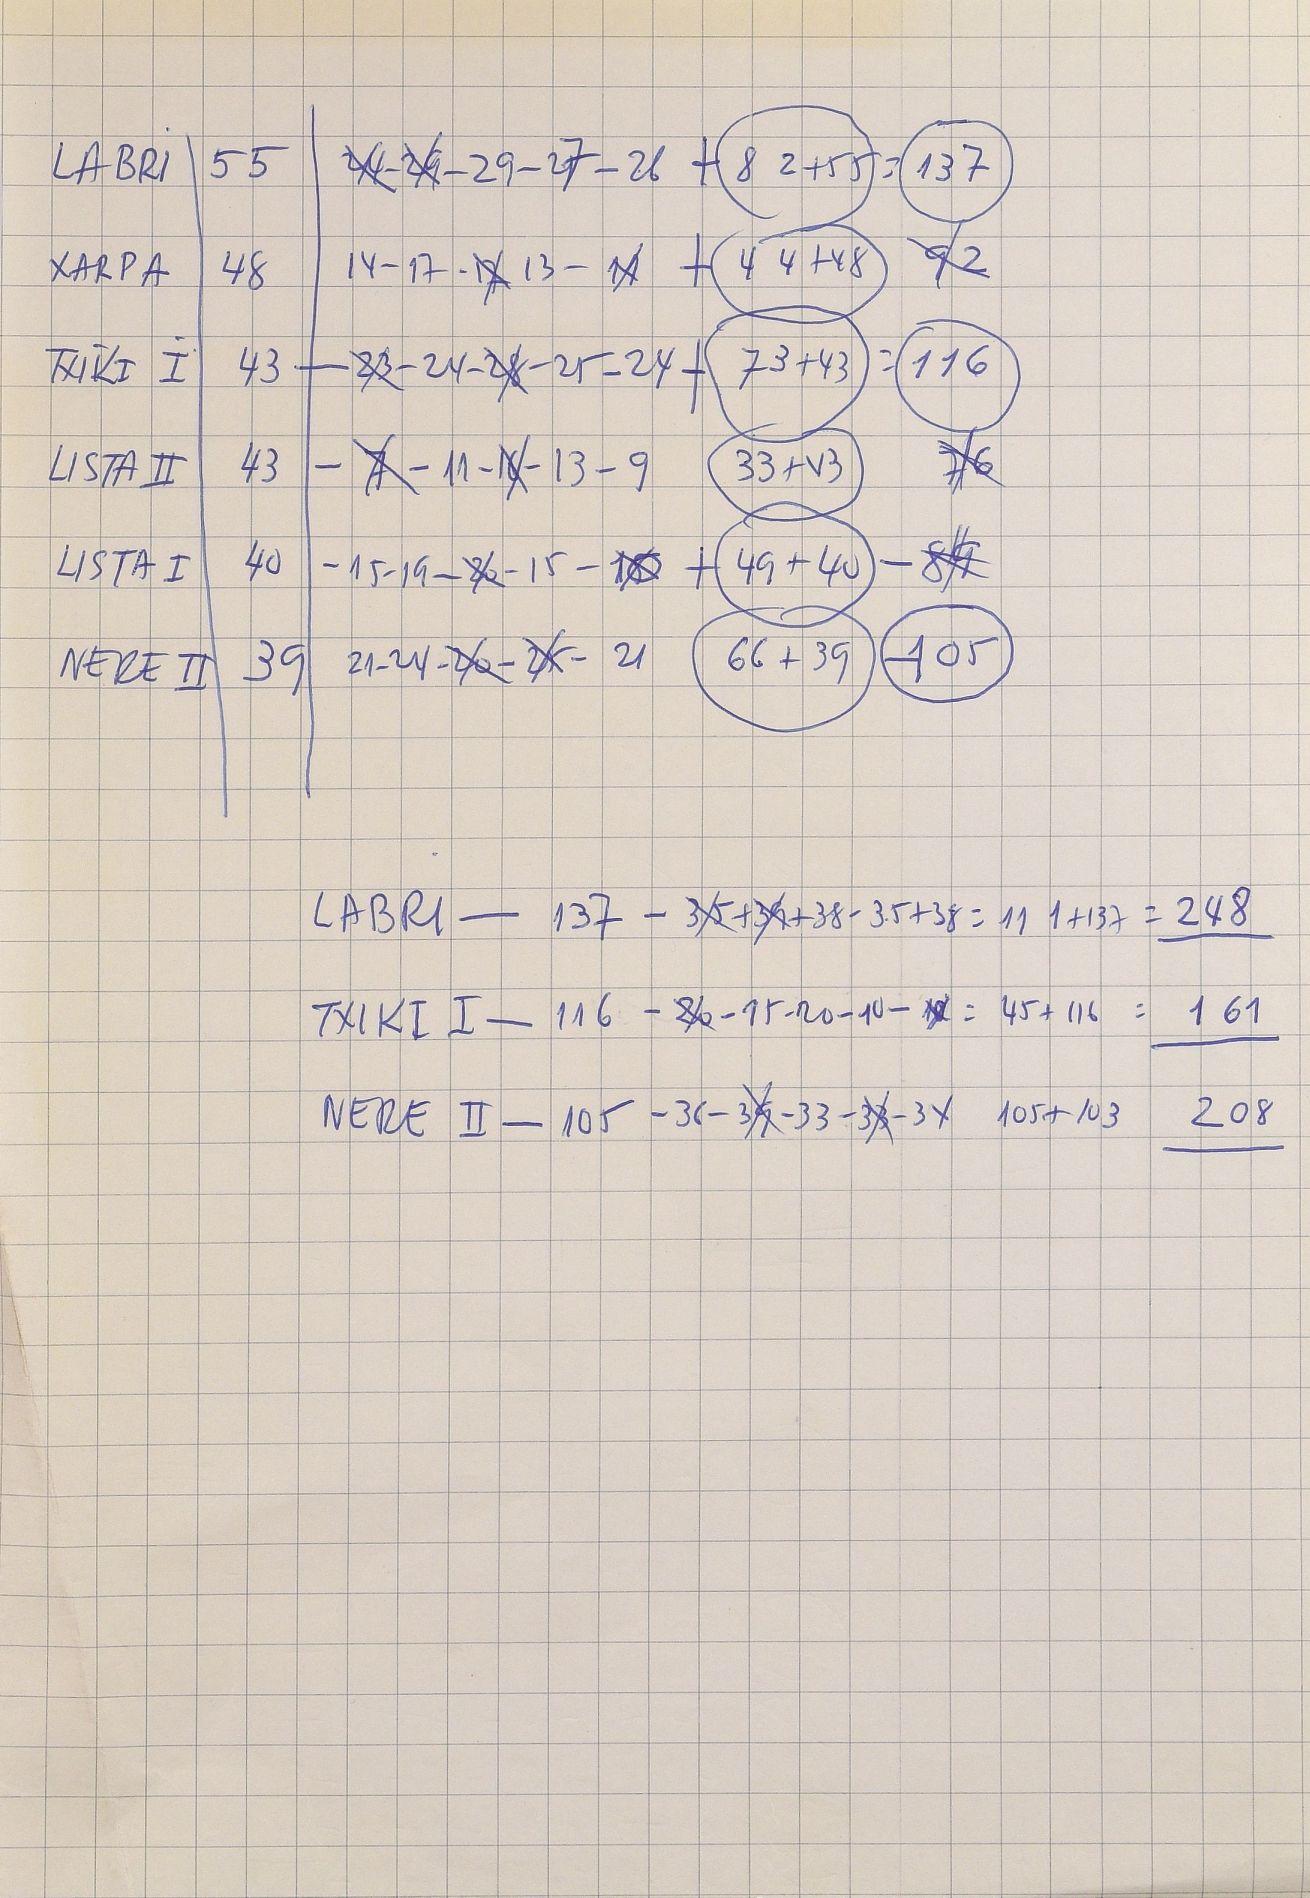 LABRI 55 24-29-29-27-26 +82+55=137
XARPA 48 14-17-17 13-11 +44+48 92
TXIKI I 43-23-24-28-25-24+73+43=116
LISTA II 43 -7-11-14-13-9 33+43 76
LISTA I 40 -15-19-20-15- +49+40-
NERE II 39 21-24-26-25-21 66+39 105
LABRI-137-35+39+38-35+38=111+137=248
TXIKI I-116-26-15-20-10- =45+116=161
NERE II-105-36-39-33-33-34 105+103 208